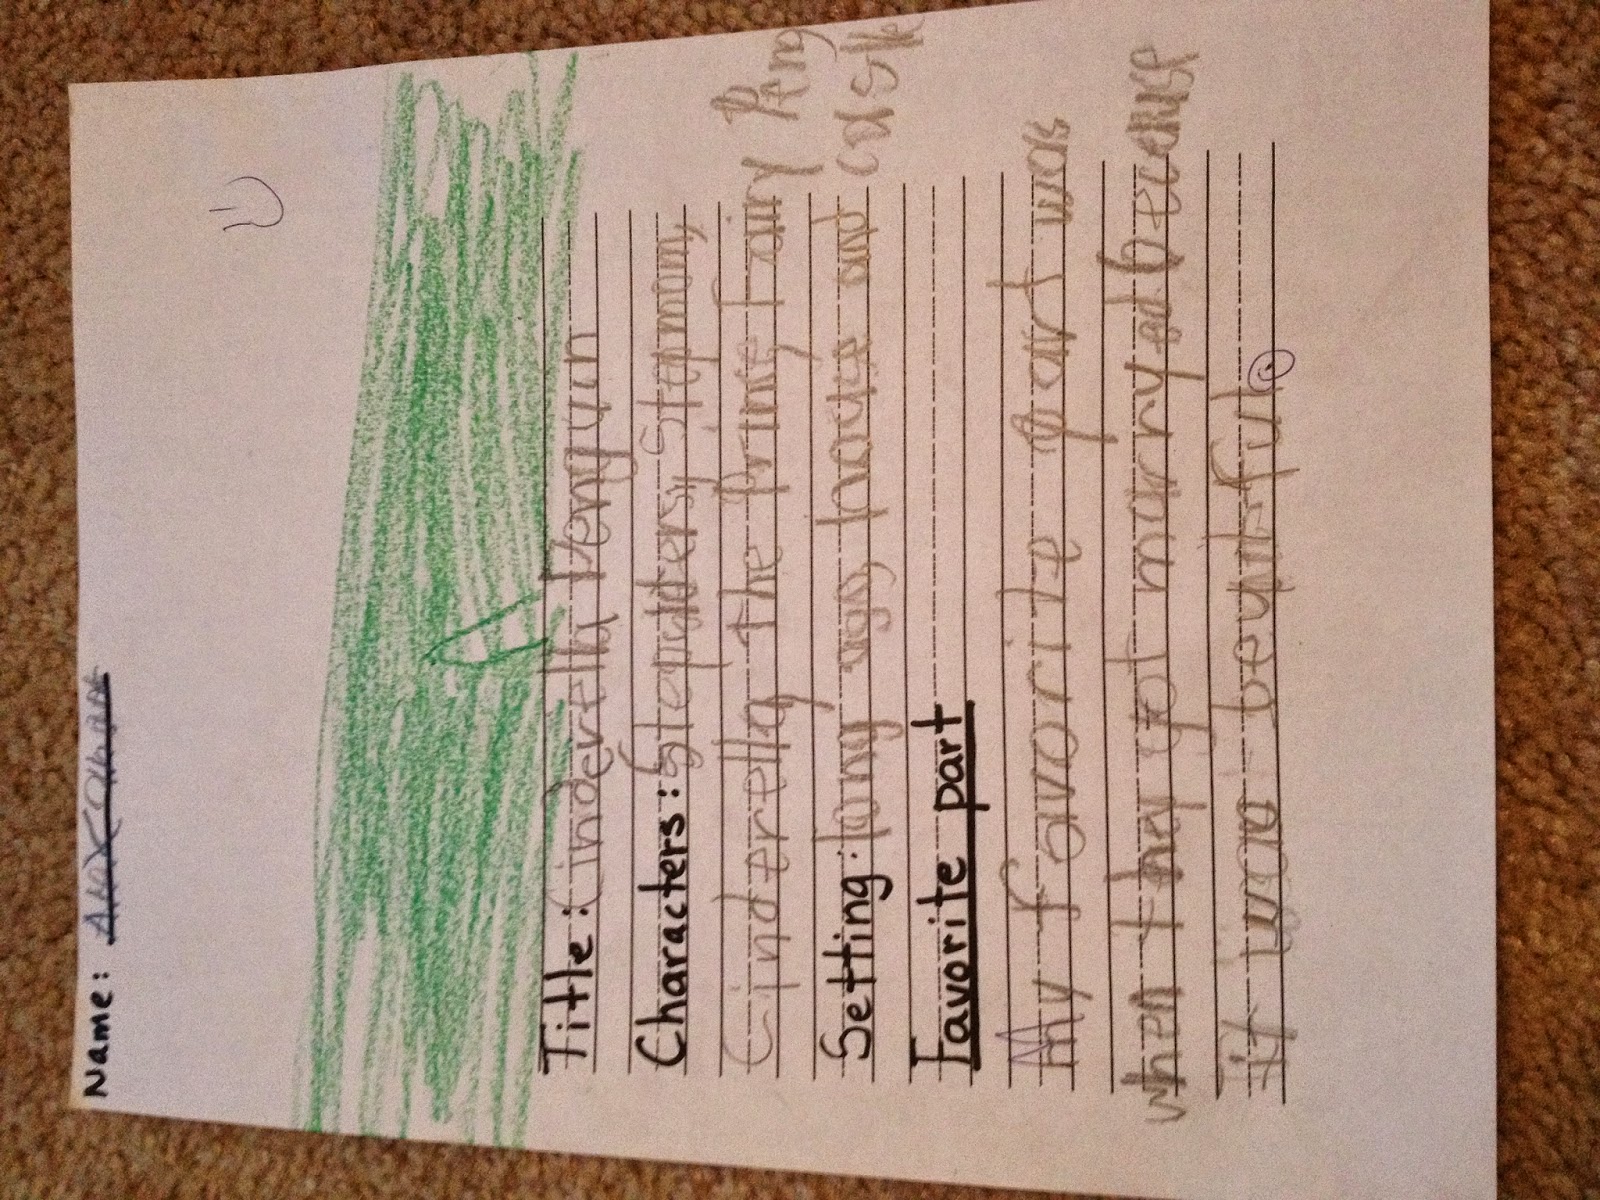 Name:
Title: Cinderella Pengun
Characters: Stepsisters, Stepmom,
Cinderella The Prins, Fairy Peng
Setting: long ago, house and casle
Favorite part
My favorite part was
when they got marryed becaus
it was beuntiful.